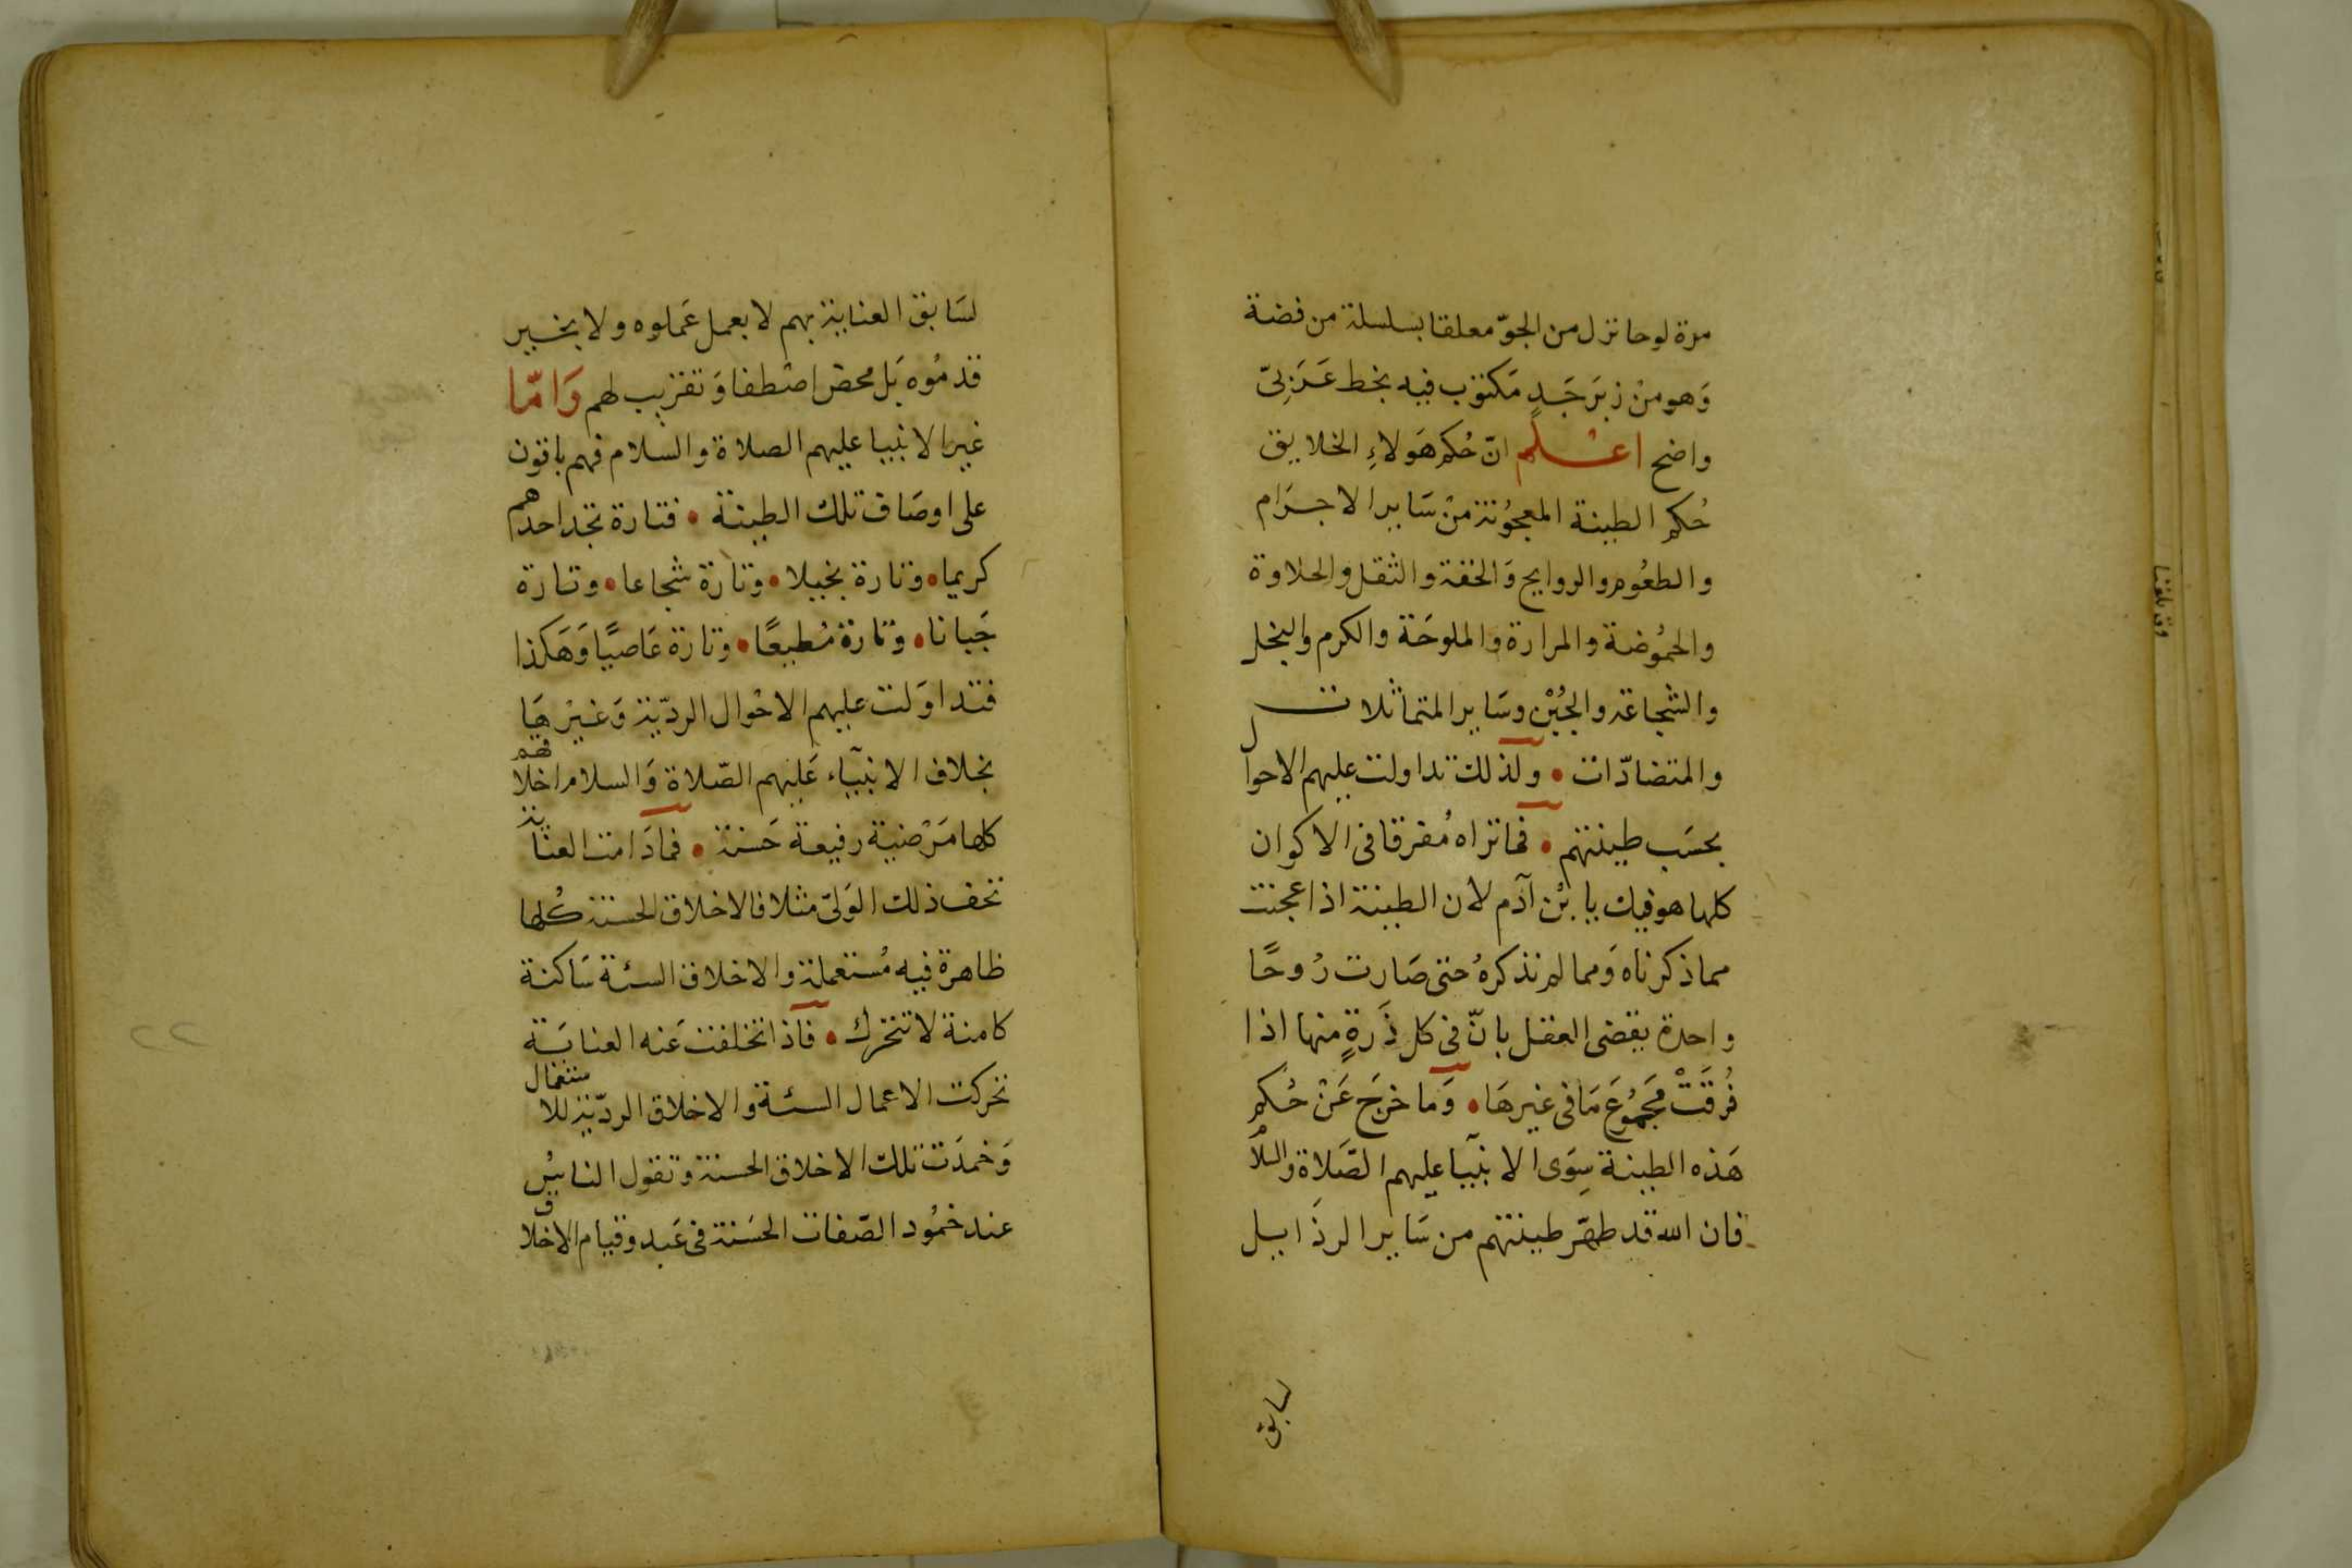 مرة لوحا نزل من الجوّ معلقا بسلسلة من فضة
وَهو منْ زبَرجَدٍ مَكتوب فيه بخط عَرَبيّ
واضح اعــلم انّ حُكم هَولاءِ الخلايق
حُكم الطينة المعجوُنة منْ سَاير الاجرَام
والطعُوم والروايح وَالخفة والثقل والحلاوة
والحمُوضة والمرارة والملوحَة والكرم والبخل
والشجاعة والجُبْن وسَاير المتماثلات
والمتضادّات • ولذلك تداولت عليهم الاحوال
بحسَب طينتهم • فما تراه مُفرقا فى الاكوان
كلها هو فيك يا بْن آدم لان الطينة اذا عجنت
مما ذكرناه وَمما لم نذكرهُ حتى صَارت رُوحًا
واحدة يقضى العقل بانّ فى كل ذَرةٍ منها اذا
فُرقَتْ مجمُوعَ مَا فى غيرهَا • وَما خرَج عَنْ حُكم
هَذه الطينة سِوَى الانبيآ عليهم الصَّلاة والسلام
فان الله قد طهّر طينتهم من سَاير الرذَايل
لسابق
لسَابق العناية بهم لا بعمل عَملوه ولا بخير
قدمُوه بَل محض اصْطفا وَتقريب لهم وَامّا
غير الانبيا عليهم الصلاة والسلام فهم باقون
على اوصَاف تلك الطينة • فتارة تجد احدهم
كريما • وتارة بخيلا • وتارة شجاعا • وتارة
جَبانا • وتارة مُطيعًا • وتارة عَاصيًا وَهَكذا
فتداوَلت عليهم الاحْوال الرديّة وَغيرْهَا
بخلاف الانبيآء عَليهم الصّلاة وَالسلام اخلاقهم
كلها مَرْضية رفيعة حَسنة • فمادَامت العناية
تحف ذلك الوَلىّ مثلا فالاخلاق الحسنة كُلها
ظاهرة فيه مُستعملة والاخلاق السئة سَاكنة
كامنة لا تتحرك • فاذا تخلفت عَنه العنايَة
تحركت الاعمال السئة والاخلاق الرديّة للاستعمال
وَخمدَت تلك الاخلاق الحسنة وتقول الناسُ
عند خمُود الصّفات الحسَنة فى عَبد وقيام الاخلاق